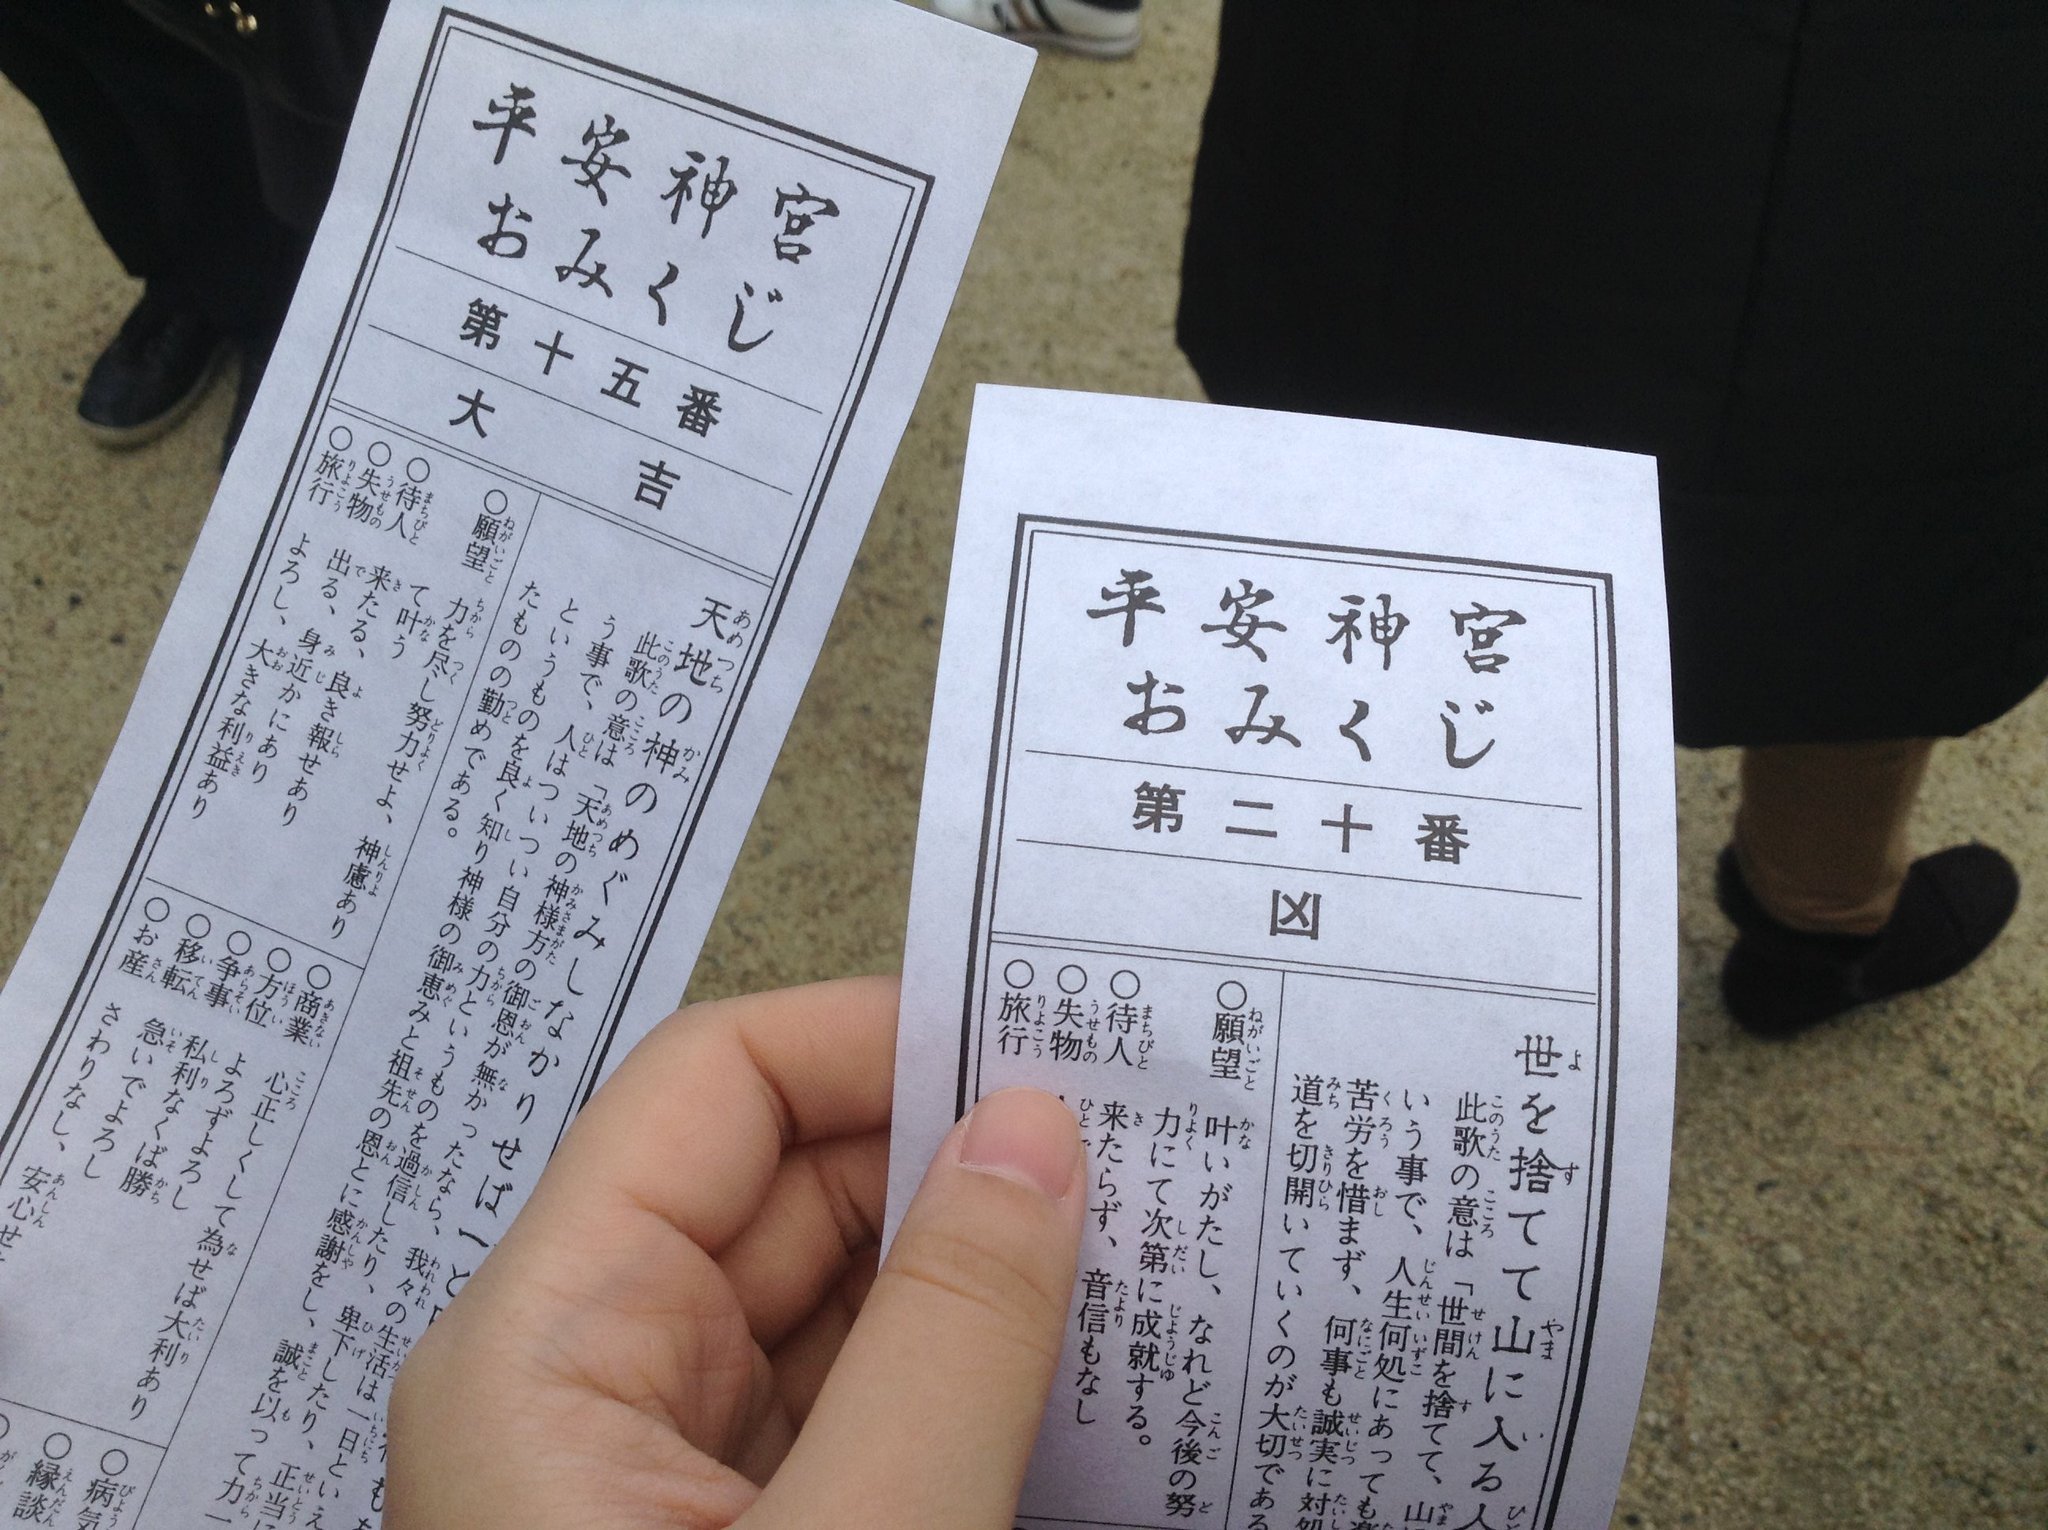 平安神宮
おみくじ
第十五番
大吉
天地の神のめぐみしなかりせば一と
此歌の意は「天地の神様方の御恩が無かったなら、我々の生活は一日とい
う事で、人はついつい自分の力というものを過信したり、卑下したり、正当に
というものを良く知り神様の御恵みと祖先の恩とに感謝をし、誠を以って力一
たものの勤めである。
○願望 力を尽し努力せよ、神慮あり
て叶う
○待人 来たる、良き報せあり
○失物 出る、身近かにあり
○旅行 よろし、大きな利益あり
○商業 心正しくして為せば大利あり
○方位 よろずよろし
○争事 私利なくば勝
○移転 急いでよろし
○お産 さわりなし、安心せ
○病気
○縁談
平安神宮
おみくじ
第二十番
凶
世を捨てて山に入る人
此歌の意は「世間を捨てて、山
いう事で、人生何処にあっても
苦労を惜まず、何事も誠実に対処
道を切開いていくのが大切である
○願望 叶いがたし、なれど今後の努
力にて次第に成就する。
○待人 来たらず、音信もなし
○失物
○旅行